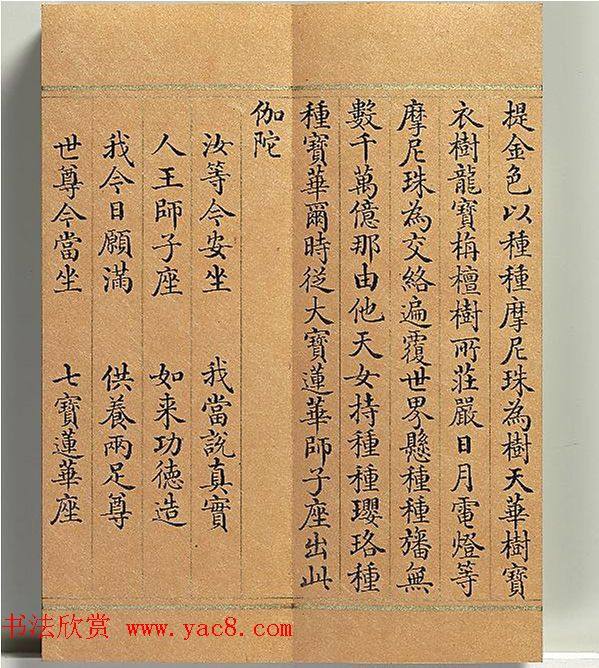 提金色以種種摩尼珠為樹天華樹寶
衣樹龍寶栴檀樹所莊嚴日月電燈等
摩尼珠為交絡遍覆世界懸種種旛無
數千萬億那由他天女持種種瓔珞種
種寶華爾時從大寶蓮華師子座出此
伽陀
汝等今安坐 我當說真實
人王師子座 如来功德造
我今日願滿 供養兩足尊
世尊今當坐 七寶蓮華座
书法欣赏 www.yac8.com